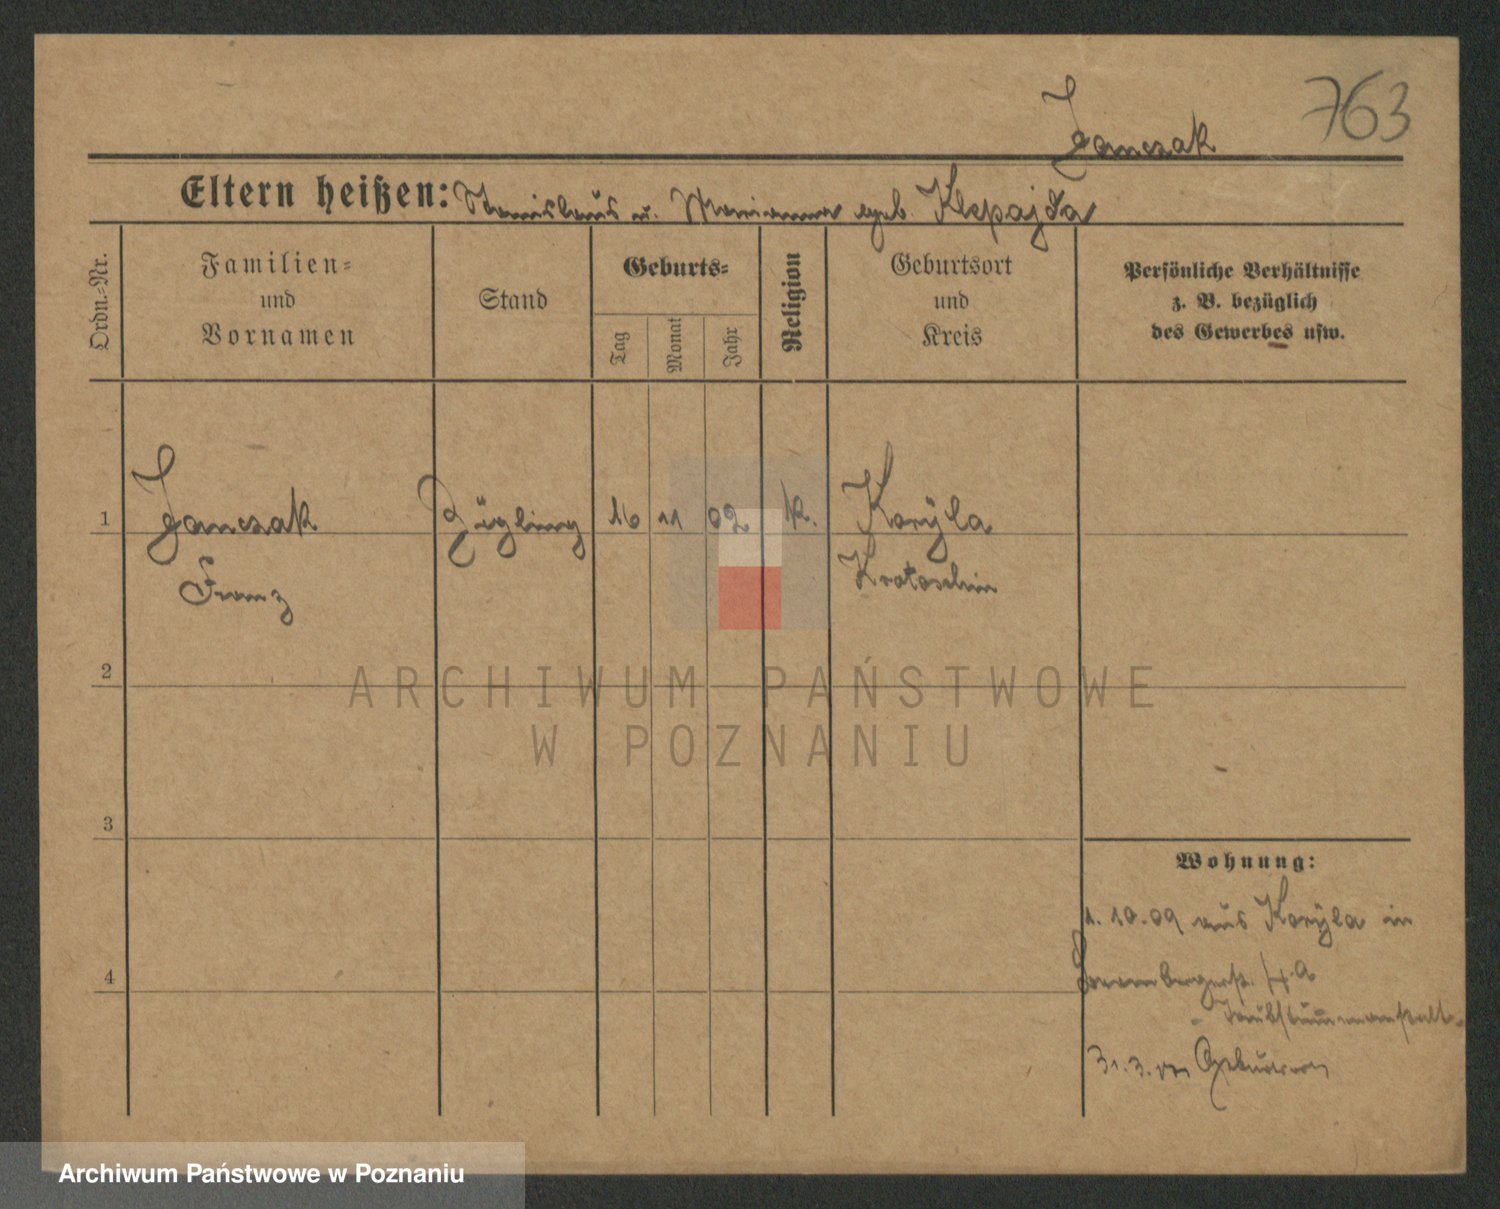 763
Janczak
Eltern heißen: Stanislaus u. Marianna geb. Klepajda
Ordn.-Nr.
Familien-
und
Vornamen
Stand
Geburts-
Tag
Monat
Jahr
Religion
Geburtsort
und
Kreis
Persönliche Verhältnisse
z. B. bezüglich
des Gewerbes usw.
1
Janczak
Franz
Zögling
16
11
02
k.
Koryla
Krotoschin
2
3
4
Wohnung:
1. 10. 09 aus Koryla in
4a
- Taubstummenanstalt -
31. 3.
ARCHIWUM PAŃSTWOWE
W POZNANIU
Archiwum Państwowe w Poznaniu